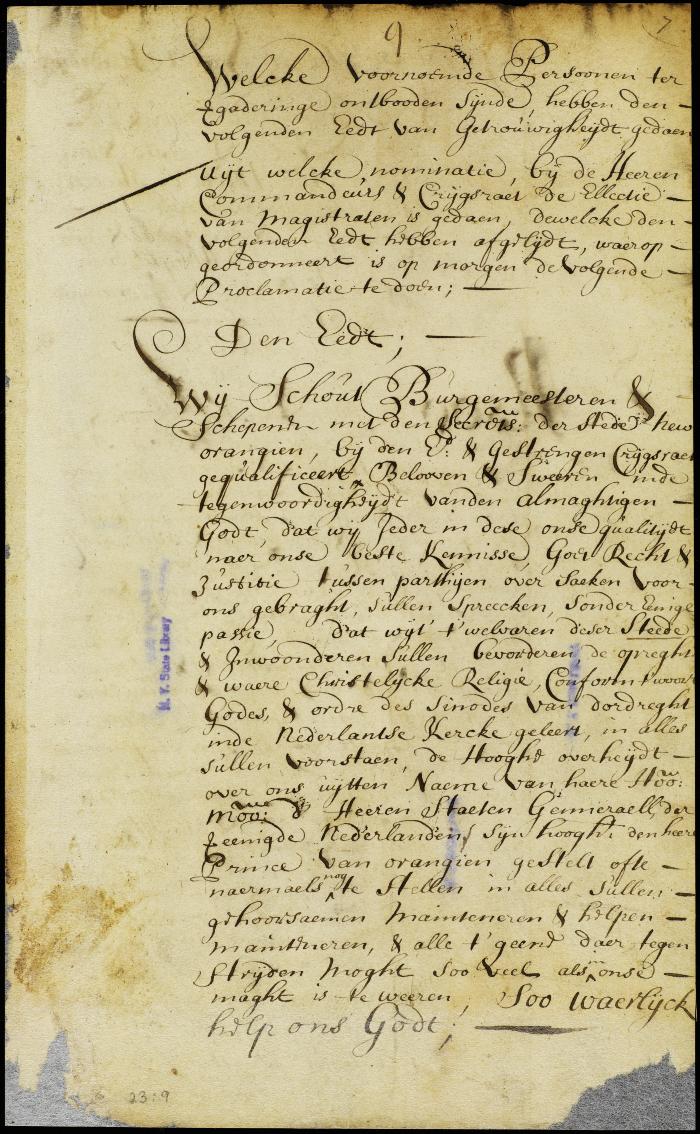 9
7
Welcke voornoemde Persoonen ter
Vgaderinge ontbooden synde, hebben den —
volgenden Eedt van Getrouwigheijdt gedaen
Uijt welcke nominatie, bij de Heeren
Commandeurs & Crijgsraet de Ellectie —
van Magistraten is gedaen, dewelcke den —
volgenden Eedt hebben afgeleijdt, waerop —
geordonneert is op morgen de volgende —
Proclamatie te doen; —
Den Eedt; —
Wij Schout Burgemeesteren &
Schepenen met den Secretris: der stede New
orangien, bij den Ed: & Gestrengen Crijgsraet
gequalificeert, Belooven & Sweeren inde
tegenwoordigheijdt vanden almaghtigen —
Godt, dat wij Jeder in dese onse qualitijdt
naer onse beste Kennisse, Goet Recht &
Justitie tussen parthijen over saeken voor —
ons gebraght, sullen spreecken, sonder Eenige
passie, dat wijt t' welvaren deser Stede
& Jnwoonderen sullen bevorderen, de opreght
& waere Christelijcke Religie, Conform t' woort
Godes, & ordre des Sinodes van Dordreght
inde Nederlantse Kercke geleert, in alles
sullen voorstaen, de Hooghe overheijdt —
over ons uijtten Naeme van haere Hoo:
Moo: d' Heeren Staeten Genneraell der
Veenigde Nederlanden, sijn hooght: den heere
Prince van orangien gestelt ofte —
naermaels nog te stellen in alles sullen —
gehoorsaemen mainteneren & helpen —
mainteneren, & alle t' geene daer tegen
Strijden moght soo veel als in onse —
maght is te weeren, Soo waerlijck
help ons Godt; —
N. Y. State Library
23:9